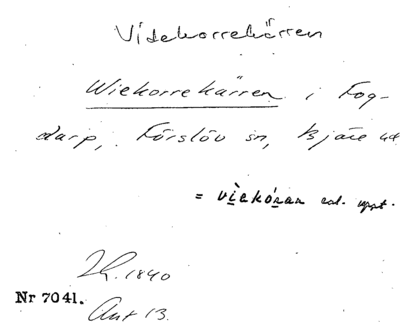 Videkorrekärren
Wiekorrekärren i Fog-
darp, Förslöv sn, Bjäre hd
= viekóran enl. uppt.
1840
Nr 7041.
Ant 13.